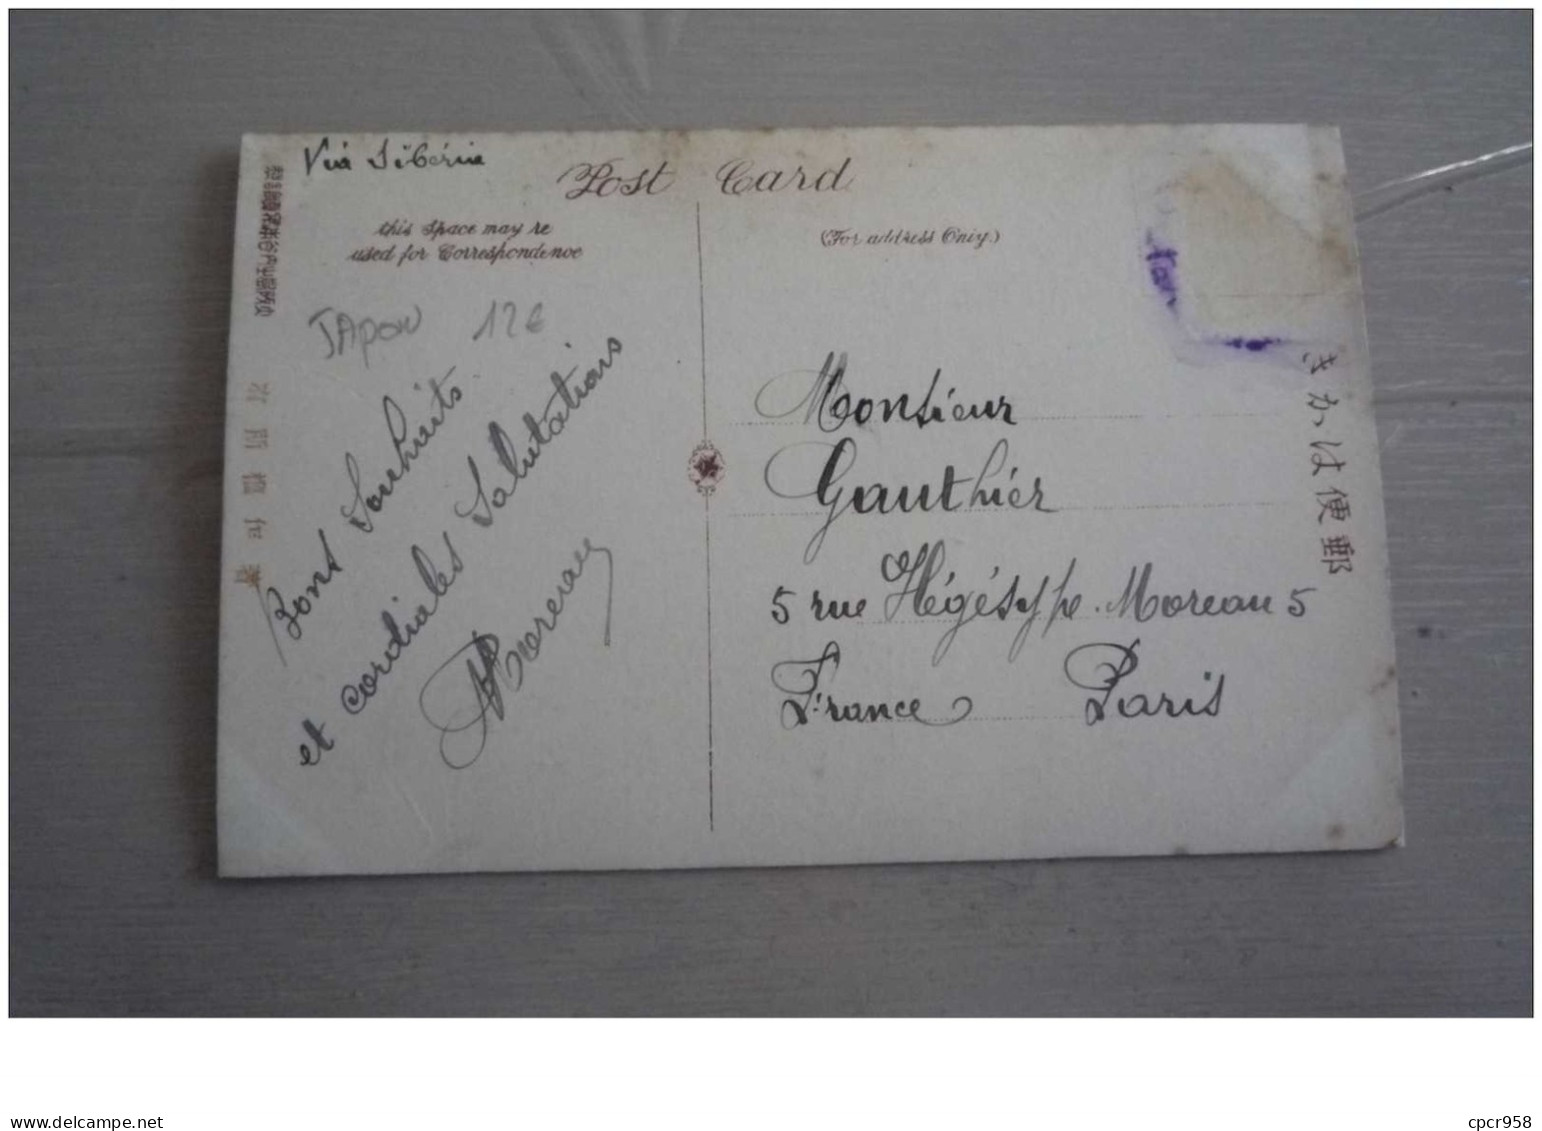 Via Sibéria
Post Card
this space may re
used for Correspondence
(For address Only.)
JApon 12€
Bons Souhaits
et cordiales Salutations
Moreau
Monsieur
Gauthier
5 rue Hégésyppe. Moreau 5
France Paris
きかは便郵
www.delcampe.net
cpcr958